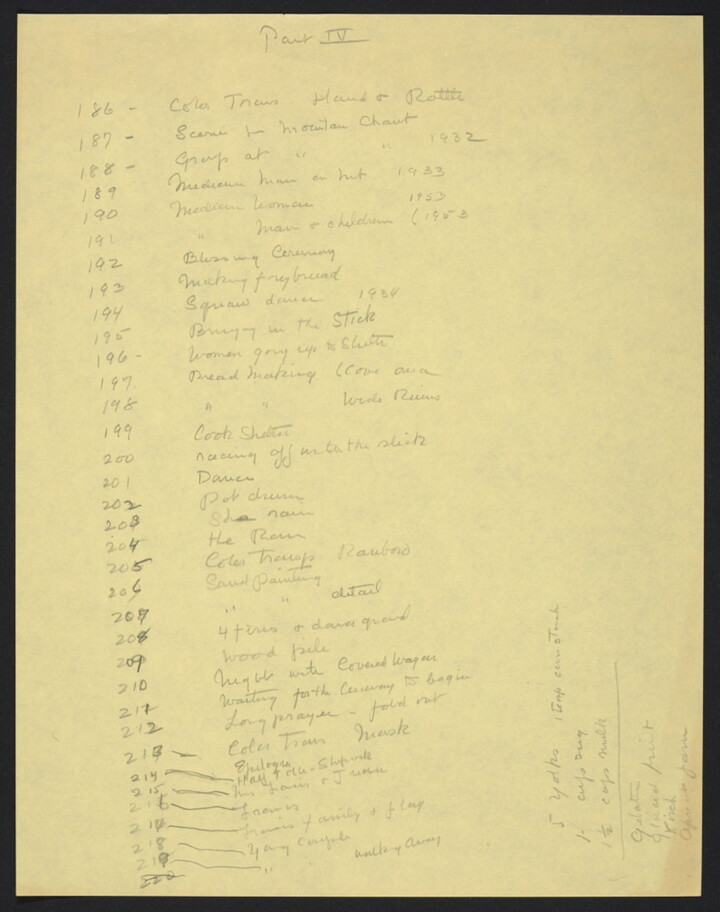 Part IV
186 - Color Trans Hand & Rattle
187 - Scene in Mountain Chant
188 - Group at " " 1932
189 Medicine Man on hat 1933
190 Medicine Woman 1953
191 " Man & children (1953
192 Blessing Ceremony
193 Making frybread
194 Squaw dance 1934
195 Bringing in the Stick
196 - Women going up to Shelter
197 Bread Making (Cove area
198 " " Wide Ruins
199 Cook Shelter
200 racing off with the stick
201 Dance
202 Pot drum
203 She rain
204 the Rain
205 Color Transp Rainbow
206 Sand Painting
207 " " detail
208 4 fires & dance ground
209 Wood pile
210 Night with Covered Wagon
211 Waiting for the Ceremony to begin
212 Long prayer - fold out
213 - Color Trans Mask
214 Epilogue
Half title - Shiprock
215 Mr. &
216 Francis
217 Francis family & flag
218 Young Couple
219 " walking away
220
5 yolks 1 tsp cornstarch
1 cup sug
1½ cups milk
Gelatin
glazed fruit
Kirsch
jam